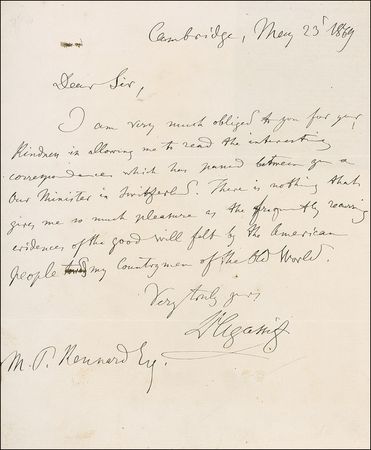 Cambridge, May 23d 1869
Dear Sir,
I am very much obliged to you for your
kindness in allowing me to read the interesting
correspondence which has passed between you a
Our Minister in Switzerld. There is nothing that
gives me so much pleasure as the frequently
evidences of the good will felt by the American
people my Countrymen of the Old World.
Very truly yrs
L Agassiz
M. P. Kennard Esq.